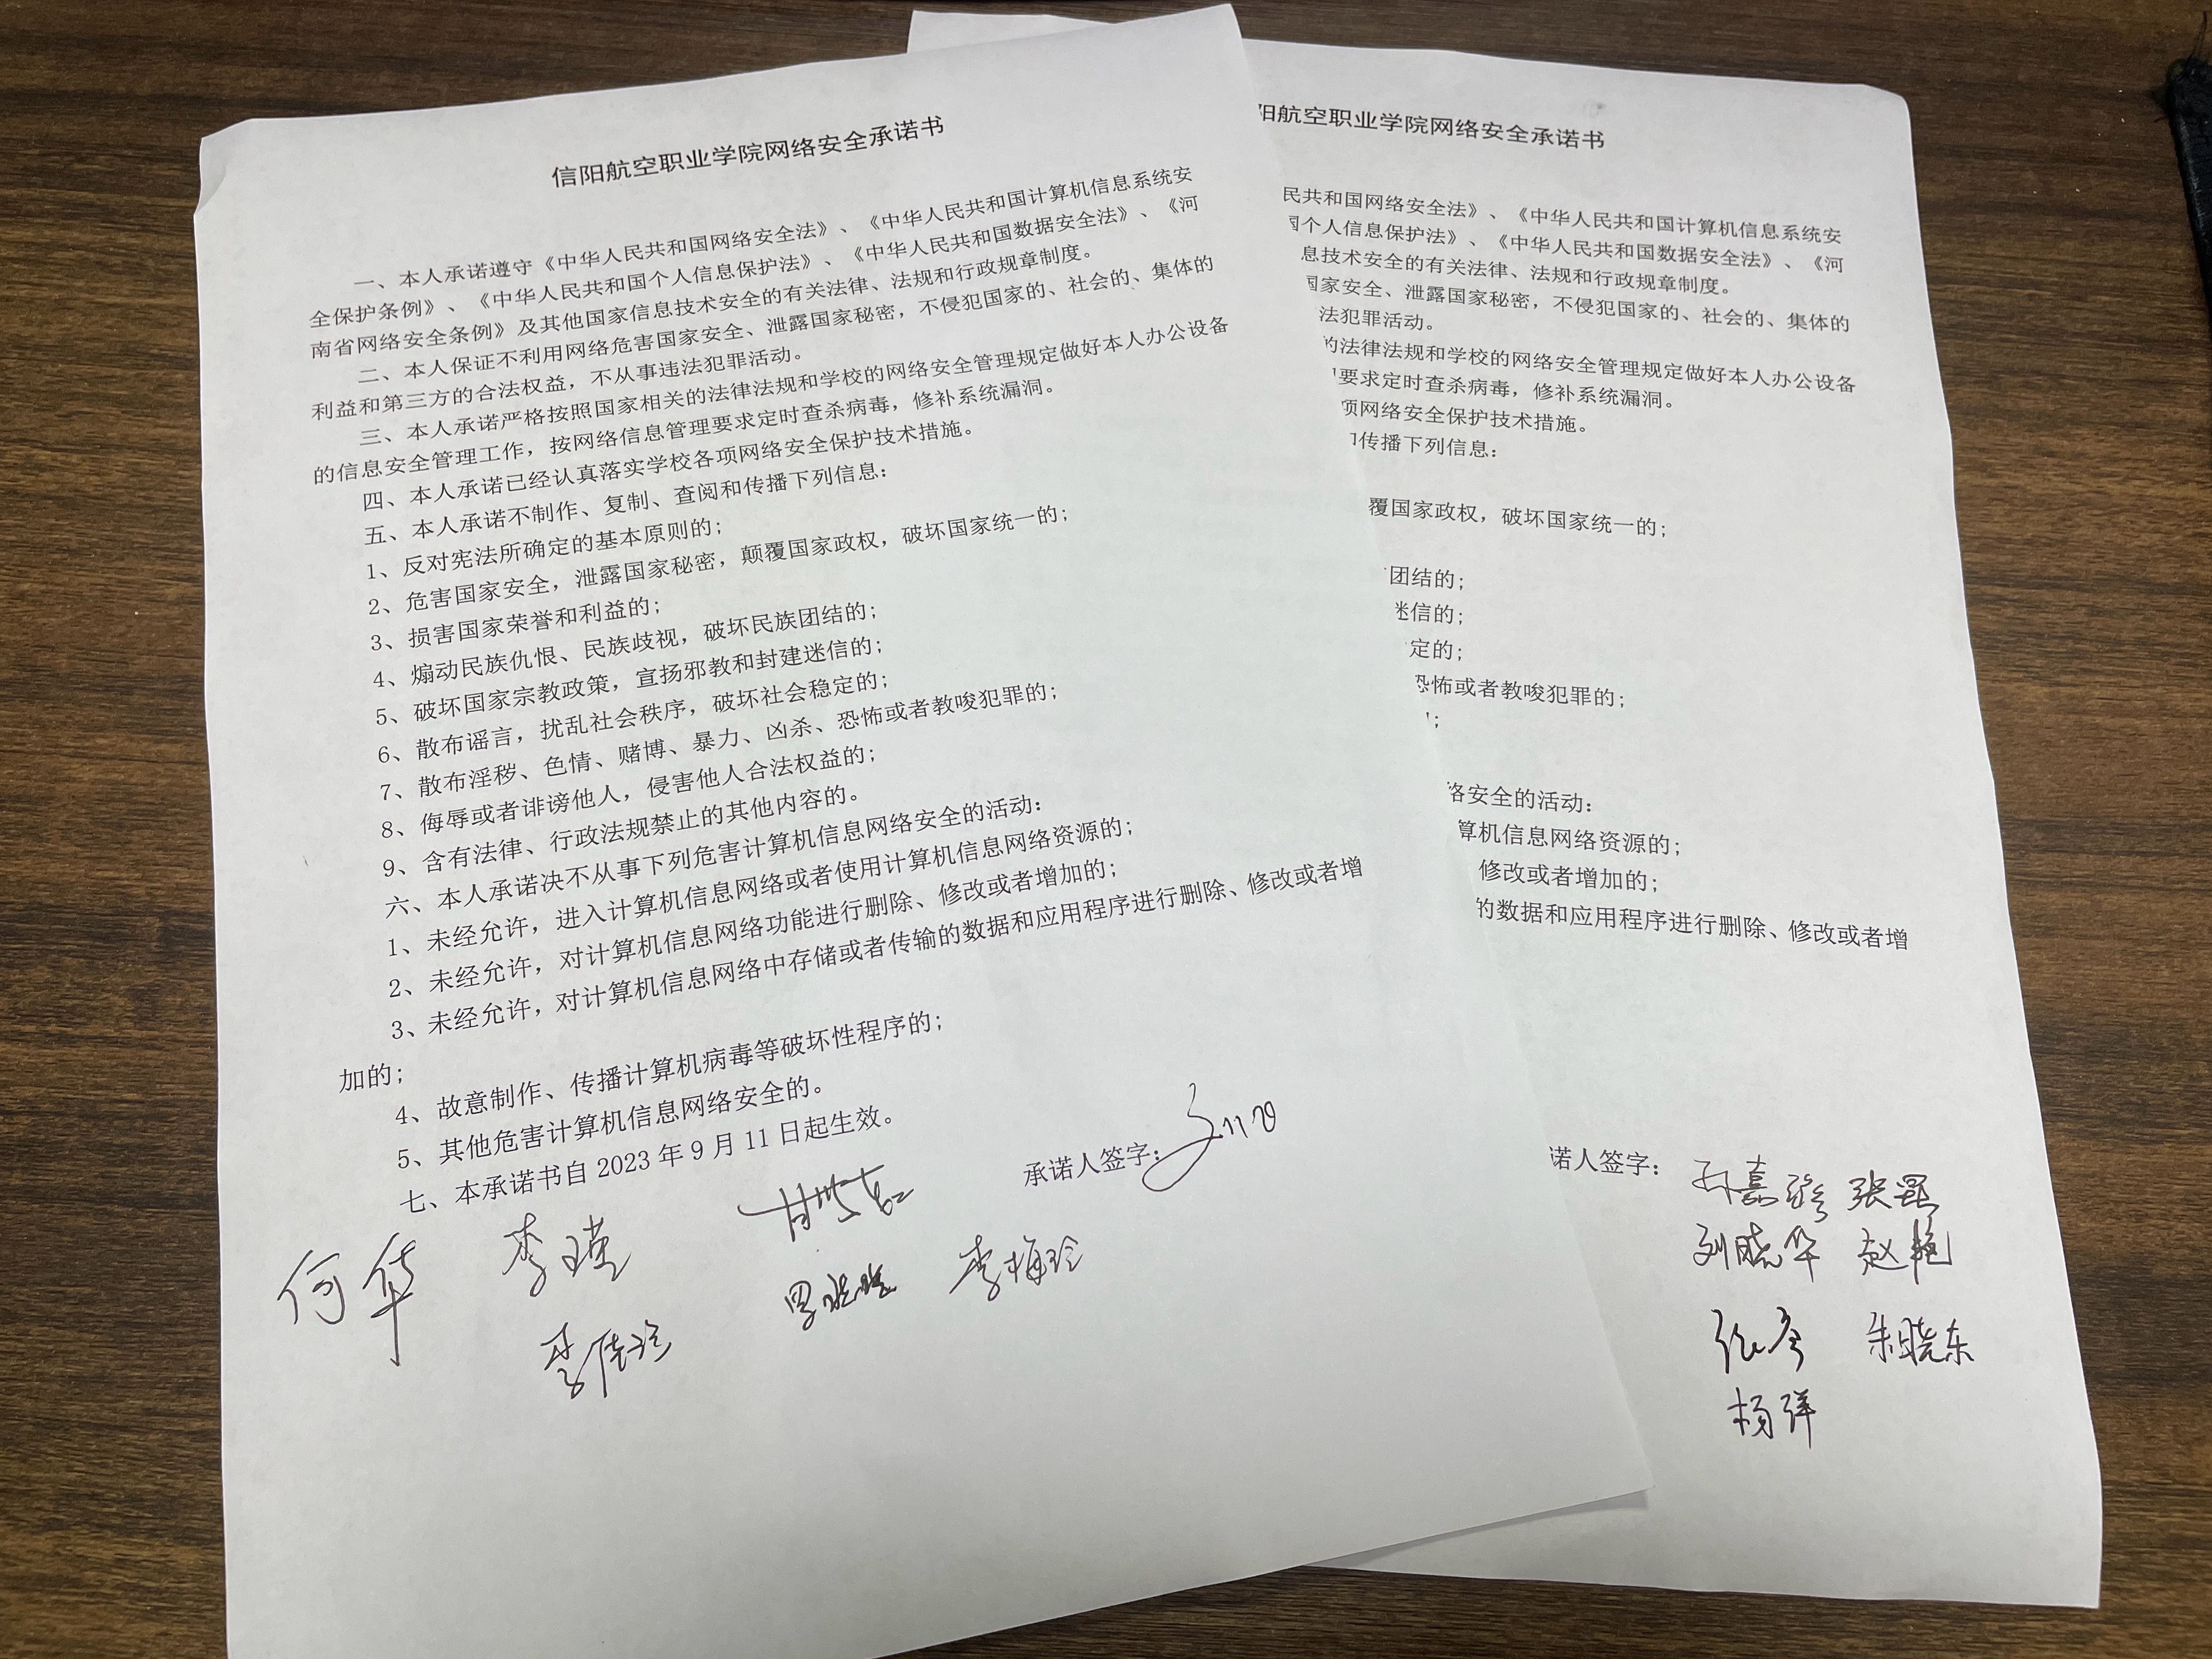 信阳航空职业学院网络安全承诺书
一、本人承诺遵守《中华人民共和国网络安全法》、《中华人民共和国计算机信息系统安
全保护条例》、《中华人民共和国个人信息保护法》、《中华人民共和国数据安全法》、《河
南省网络安全条例》及其他国家信息技术安全的有关法律、法规和行政规章制度。
二、本人保证不利用网络危害国家安全、泄露国家秘密，不侵犯国家的、社会的、集体的
利益和第三方的合法权益，不从事违法犯罪活动。
三、本人承诺严格按照国家相关的法律法规和学校的网络安全管理规定做好本人办公设备
的信息安全管理工作，按网络信息管理要求定时查杀病毒，修补系统漏洞。
四、本人承诺已经认真落实学校各项网络安全保护技术措施。
五、本人承诺不制作、复制、查阅和传播下列信息：
1、反对宪法所确定的基本原则的；
2、危害国家安全，泄露国家秘密，颠覆国家政权，破坏国家统一的；
3、损害国家荣誉和利益的；
4、煽动民族仇恨、民族歧视，破坏民族团结的；
5、破坏国家宗教政策，宣扬邪教和封建迷信的；
6、散布谣言，扰乱社会秩序，破坏社会稳定的；
7、散布淫秽、色情、赌博、暴力、凶杀、恐怖或者教唆犯罪的；
8、侮辱或者诽谤他人，侵害他人合法权益的；
9、含有法律、行政法规禁止的其他内容的。
六、本人承诺决不从事下列危害计算机信息网络安全的活动：
1、未经允许，进入计算机信息网络或者使用计算机信息网络资源的；
2、未经允许，对计算机信息网络功能进行删除、修改或者增加的；
3、未经允许，对计算机信息网络中存储或者传输的数据和应用程序进行删除、修改或者增
加的；
4、故意制作、传播计算机病毒等破坏性程序的；
5、其他危害计算机信息网络安全的。
七、本承诺书自 2023 年 9 月 11 日起生效。
承诺人签字：
何华 李瑾
李梅玲
阳航空职业学院网络安全承诺书
民共和国网络安全法》、《中华人民共和国计算机信息系统安
国个人信息保护法》、《中华人民共和国数据安全法》、《河
息技术安全的有关法律、法规和行政规章制度。
国家安全、泄露国家秘密，不侵犯国家的、社会的、集体的
法犯罪活动。
的法律法规和学校的网络安全管理规定做好本人办公设备
要求定时查杀病毒，修补系统漏洞。
项网络安全保护技术措施。
传播下列信息：
覆国家政权，破坏国家统一的；
团结的；
迷信的；
定的；
恐怖或者教唆犯罪的；
；
络安全的活动：
算机信息网络资源的；
修改或者增加的；
的数据和应用程序进行删除、修改或者增
诺人签字：
孙嘉 张
刘晓华 赵艳
朱晓东
杨洋